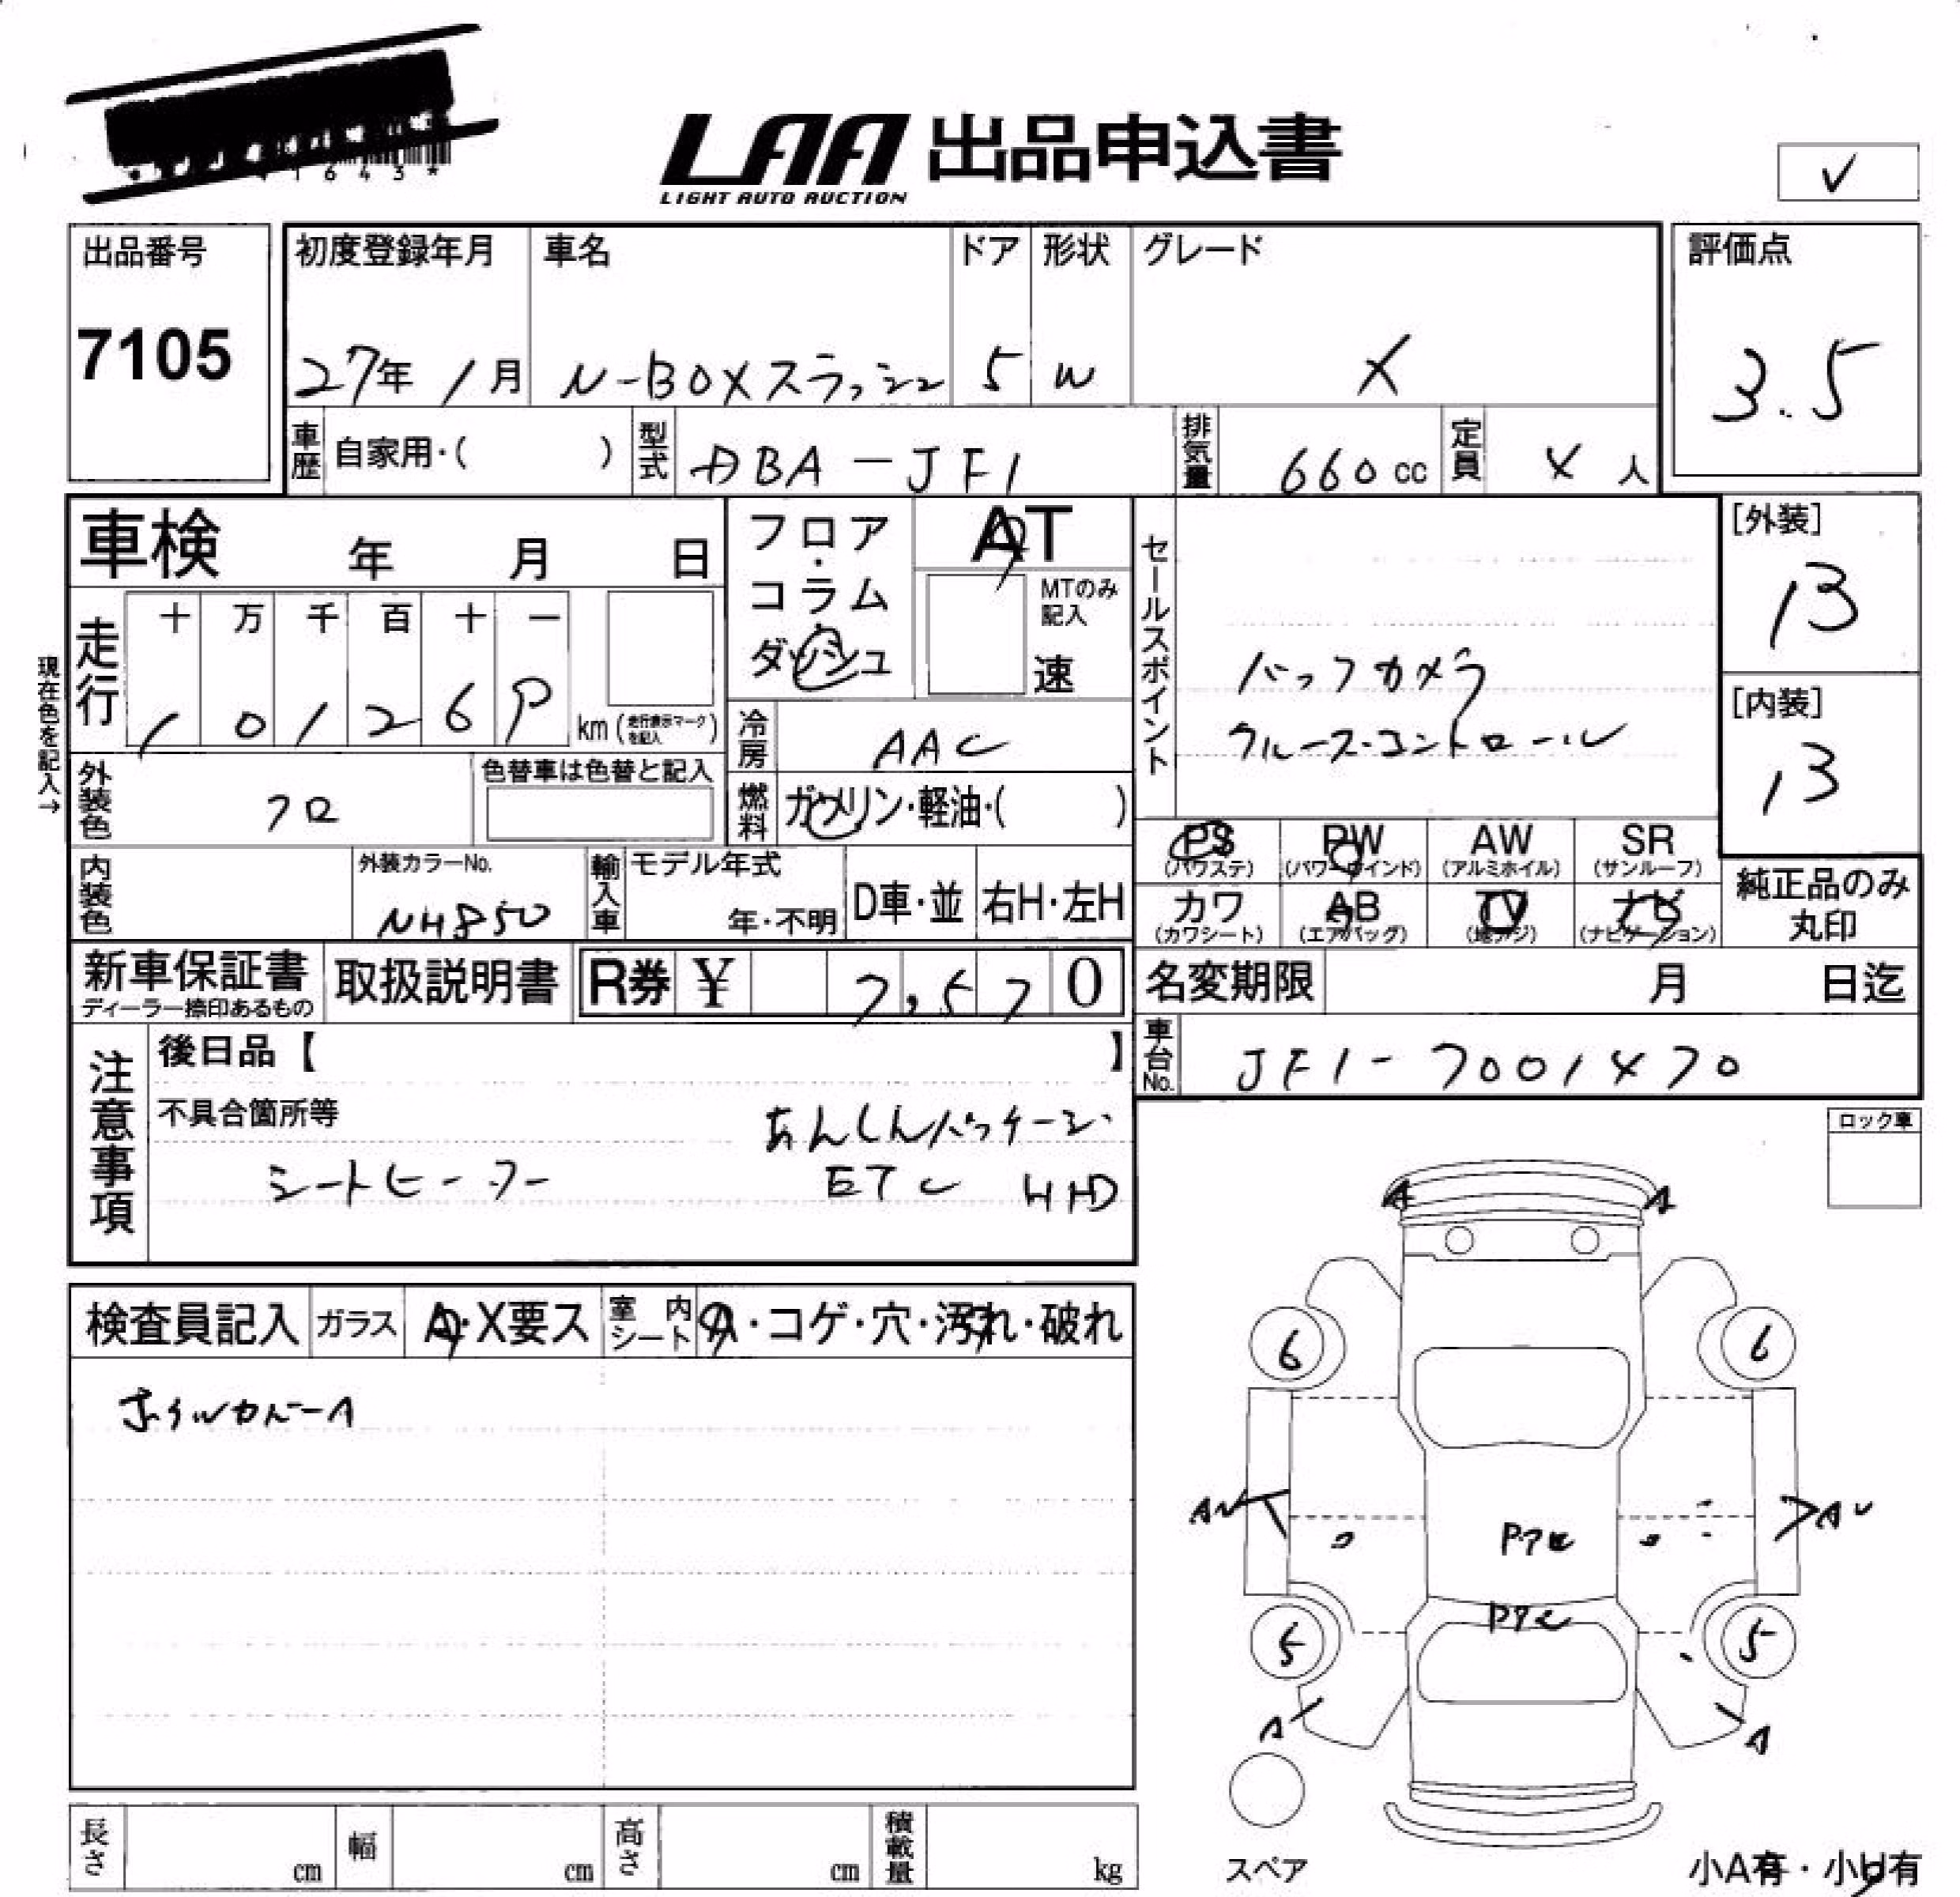 1643*
LAA 出品申込書
LIGHT AUTO AUCTION
✓
出品番号
7105
初度登録年月
27年 1月
車名
N-BOXスラッシュ
ドア
5
形状
W
グレード
X
評価点
3.5
車歴 自家用・( )
型式 DBA-JF1
排気量 660 cc
定員 4 人
車検 年 月 日
フロア・コラム・ダッシュ
AT
MTのみ記入
速
セールスポイント
バックカメラ
クルーズ・コントロール
[外装]
13
[内装]
13
現在色を記入→
走行
十 万 千 百 十 一
1 0 1 2 6 9
km (走行表示マークを記入)
冷房 AAC
燃料 ガソリン・軽油・( )
外装色 クロ
色替車は色替と記入
内装色
外装カラーNo.
NH850
輸入車
モデル年式
年・不明
D車・並
右H・左H
PS (パワステ)
PW (パワーウインド)
AW (アルミホイル)
SR (サンルーフ)
カワ (カワシート)
AB (エアバッグ)
TV (地デジ)
ナビ (ナビゲーション)
純正品のみ丸印
新車保証書
ディーラー捺印あるもの
取扱説明書
R券 ¥ 7,570
名変期限 月 日迄
車台No. JF1-7001470
注意事項
後日品【 】
不具合箇所等
あんしんパッケージ
シートヒーター ETC HID
ロック車
検査員記入
ガラス A・X要ス
室内シート A・コゲ・穴・汚れ・破れ
ホイルカバーA
A A
6 6
A A
Pアセ
Pアセ
5 5
A A
スペア
小A有・小U有
長さ cm
幅 cm
高さ cm
積載量 kg